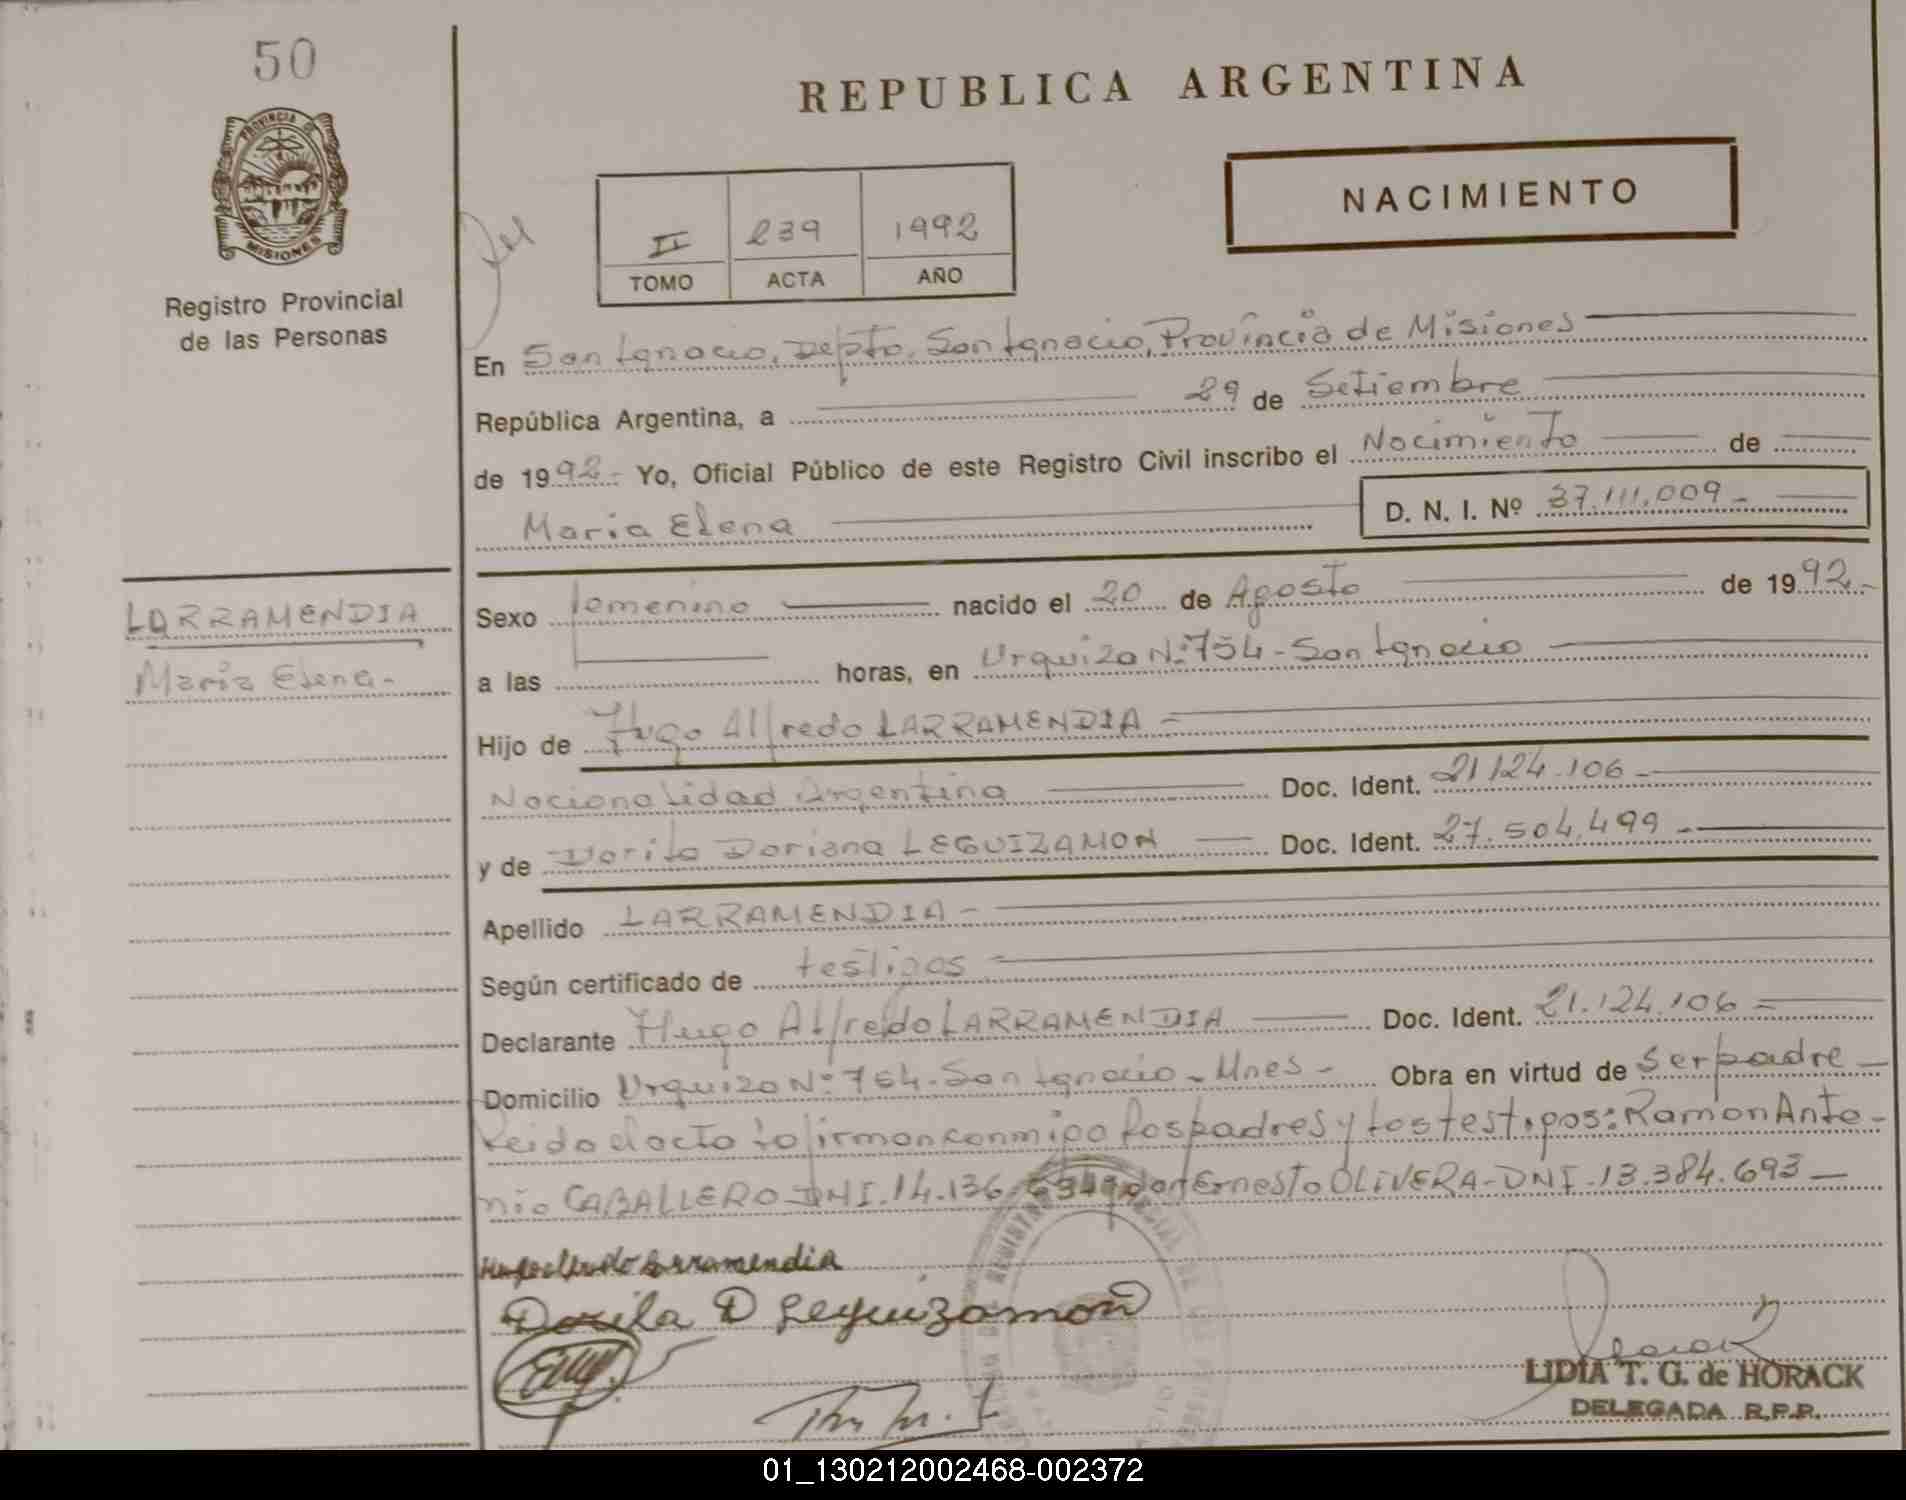 50
REPUBLICA ARGENTINA
PROVINCIA DE
MISIONES
Registro Provincial
de las Personas
II 239 1992
TOMO ACTA AÑO
NACIMIENTO
En San Ignacio, Depto. San Ignacio, Provincia de Misiones
República Argentina, a 29 de Setiembre
de 1992.- Yo, Oficial Público de este Registro Civil inscribo el Nacimiento de
Maria Elena D. N. I. Nº 37.111.009-
LARRAMENDIA
Maria Elena-
Sexo femenino nacido el 20 de Agosto de 1992.-
a las horas, en Urquiza Nº 754-San Ignacio
Hijo de Hugo Alfredo LARRAMENDIA-
Nacionalidad Argentina Doc. Ident. 21.124.106-
y de Dorila Doriana LEGUIZAMON Doc. Ident. 27.504.499-
Apellido LARRAMENDIA-
Según certificado de testigos
Declarante Hugo Alfredo LARRAMENDIA Doc. Ident. 21.124.106-
Domicilio Urquiza Nº 754-San Ignacio-Mnes- Obra en virtud de ser padre-
Leido el acta la firman conmigo los padres y los testigos: Ramon Anto-
nio CABALLERO-DNI.14.136. Ernesto OLIVERA-DNI.13.384.693-
Hugo Alfredo Larramendia
Dorila D Leguizamon
LIDIA T. G. de HORACK
DELEGADA R.P.P.
01_130212002468-002372